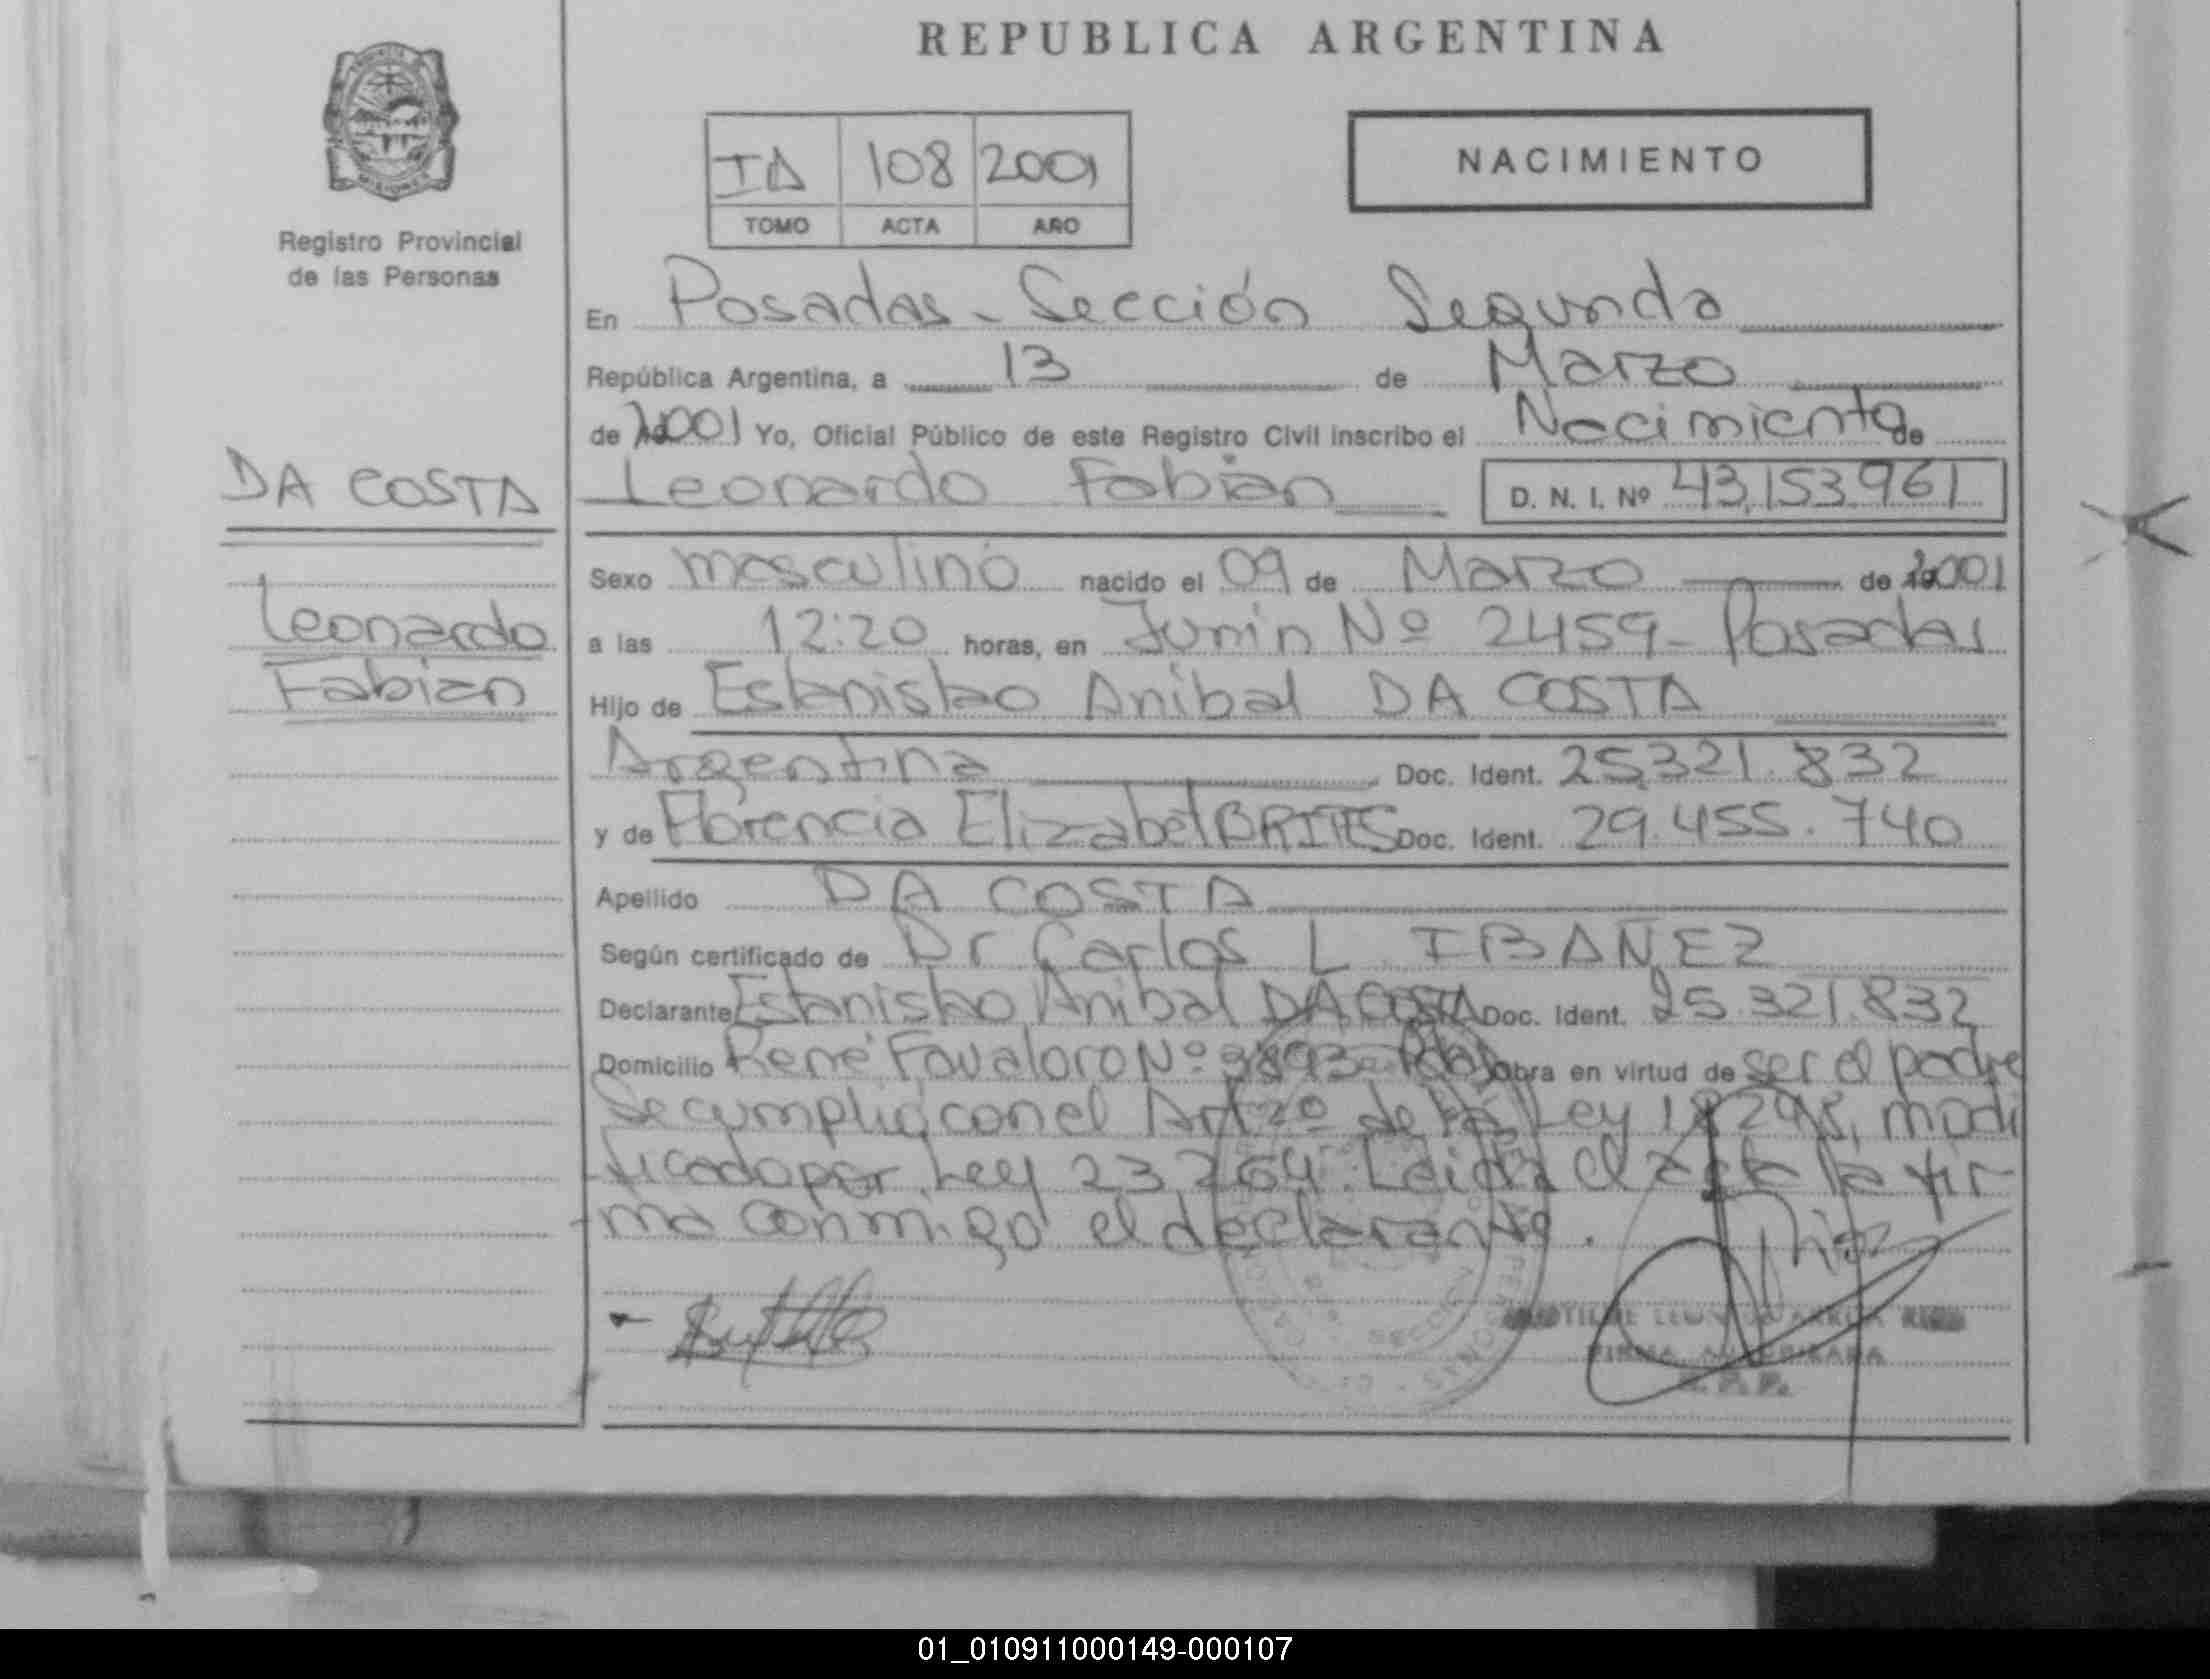 REPUBLICA ARGENTINA
MISIONES
Registro Provincial
de las Personas
IA 108 2001
TOMO ACTA AÑO
NACIMIENTO
En Posadas - Sección Segunda
República Argentina, a 13 de Marzo
de 2001 Yo, Oficial Público de este Registro Civil inscribo el Nacimiento de
DA COSTA
Leonardo Fabian
Leonardo Fabián D. N. I. Nº 43.153.961
Sexo masculino nacido el 09 de Marzo de 2001
a las 12:20 horas, en Junín Nº 2459 - Posadas
Hijo de Estanislao Anibal DA COSTA
Argentina Doc. Ident. 25.321.832
y de Florencia Elizabet BRITES Doc. Ident. 29.455.740
Apellido DA COSTA
Según certificado de Dr Carlos L. IBAÑEZ
Declarante Estanislao Anibal DA COSTA Doc. Ident. 25.321.832
Domicilio René Favaloro Nº 3893 - Pdas Obra en virtud de ser el padre
Se cumplió con el Art 2º de la Ley 18298, modi
ficado por Ley 23264. Leida el acta la fir-
ma conmigo el declarante.
FIRMA AUTORIZADA
R. P. P.
01_010911000149-000107